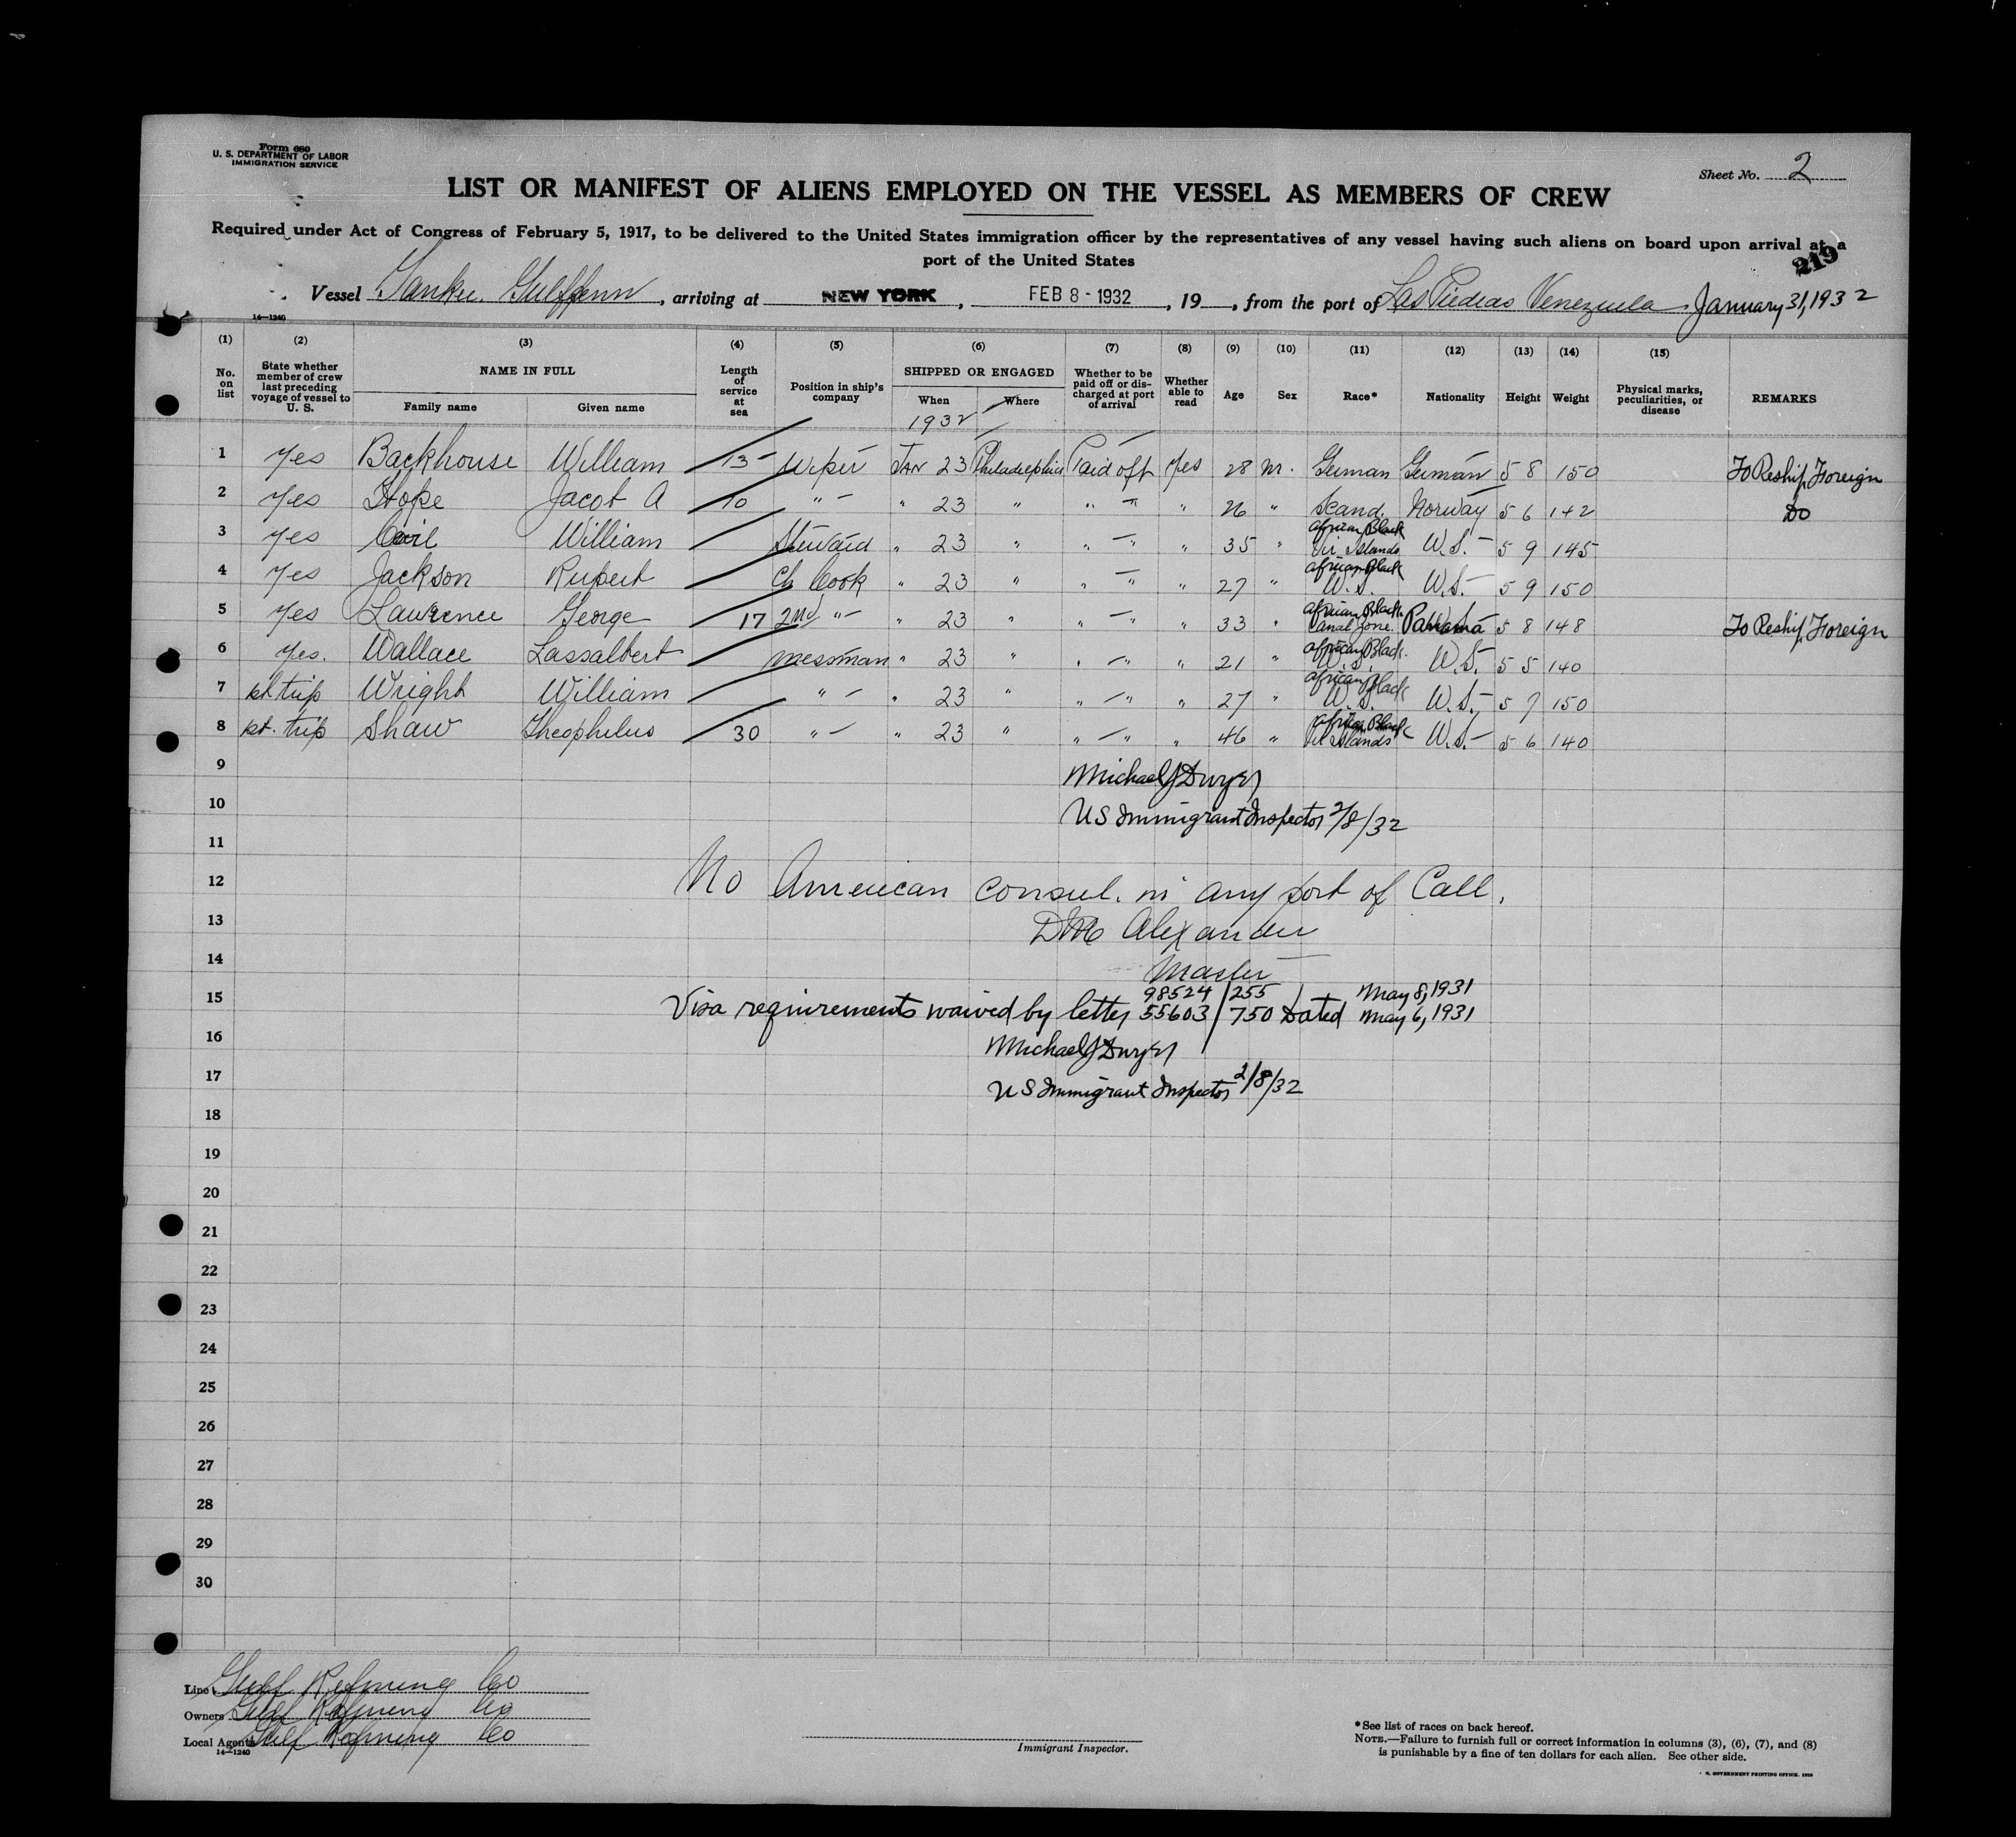 Form 680
U. S. DEPARTMENT OF LABOR
IMMIGRATION SERVICE
Sheet No. 2
LIST OR MANIFEST OF ALIENS EMPLOYED ON THE VESSEL AS MEMBERS OF CREW
Required under Act of Congress of February 5, 1917, to be delivered to the United States immigration officer by the representatives of any vessel having such aliens on board upon arrival at a
port of the United States
219
Vessel Tanker Gulfpenn, arriving at NEW YORK, FEB 8 - 1932, 19 , from the port of Las Piedras Venezuela January 31, 1932
14—1240
(1) (2) (3) (4) (5) (6) (7) (8) (9) (10) (11) (12) (13) (14) (15)
No. on list
State whether member of crew last preceding voyage of vessel to U. S.
NAME IN FULL
Family name
Given name
Length of service at sea
Position in ship's company
SHIPPED OR ENGAGED
When
Where
1932
Whether to be paid off or discharged at port of arrival
Whether able to read
Age
Sex
Race*
Nationality
Height
Weight
Physical marks, peculiarities, or disease
REMARKS
1 Yes Backhouse William 13 Wiper Jan 23 Philadelphia Paid off Yes 28 M. German German 5 8 150 To Reship Foreign
2 Yes Hope Jacob A 10 " - " 23 " " - " 26 " Scand. Norway 5 6 142 Do
3 Yes William Steward " 23 " " - " " 35 " African Black Vir Islands W.S. - 5 9 145
4 Yes Jackson Rupert Ch Cook " 23 " " - " " 27 " African Black W.S. W.S. - 5 9 150
5 Yes Lawrence George 17 2nd " - " 23 " " - " " 33 " African Black. Canal Zone. Panama 5 8 148 To Reship Foreign
6 Yes. Wallace Lassalbert messman " 23 " " - " " 21 " African Black. W.S. W.S. 5 5 140
7 1st trip Wright William " - " 23 " " - " " 27 " African Black W.S. W.S. - 5 7 150
8 1st. trip Shaw Theophilus 30 " - " 23 " " - " " 46 " African Black Vir Islands W.S. - 5 6 140
9
Michael J Dwyer
10
US Immigrant Inspector 2/8/32
11
12
No American Consul. in any port of Call.
13
Alexander
14
Master
15
98524/255 May 8, 1931
Visa requirements waived by letter 55603/750 Dated May 6, 1931
16
Michael J Dwyer
17
US Immigrant Inspector 2/8/32
18
19
20
21
22
23
24
25
26
27
28
29
30
Line Gulf Refining Co
Owners Gulf Refining Co
Local Agents Gulf Refining Co
14—1240
Immigrant Inspector.
*See list of races on back hereof.
NOTE.—Failure to furnish full or correct information in columns (3), (6), (7), and (8)
is punishable by a fine of ten dollars for each alien. See other side.
GOVERNMENT PRINTING OFFICE.